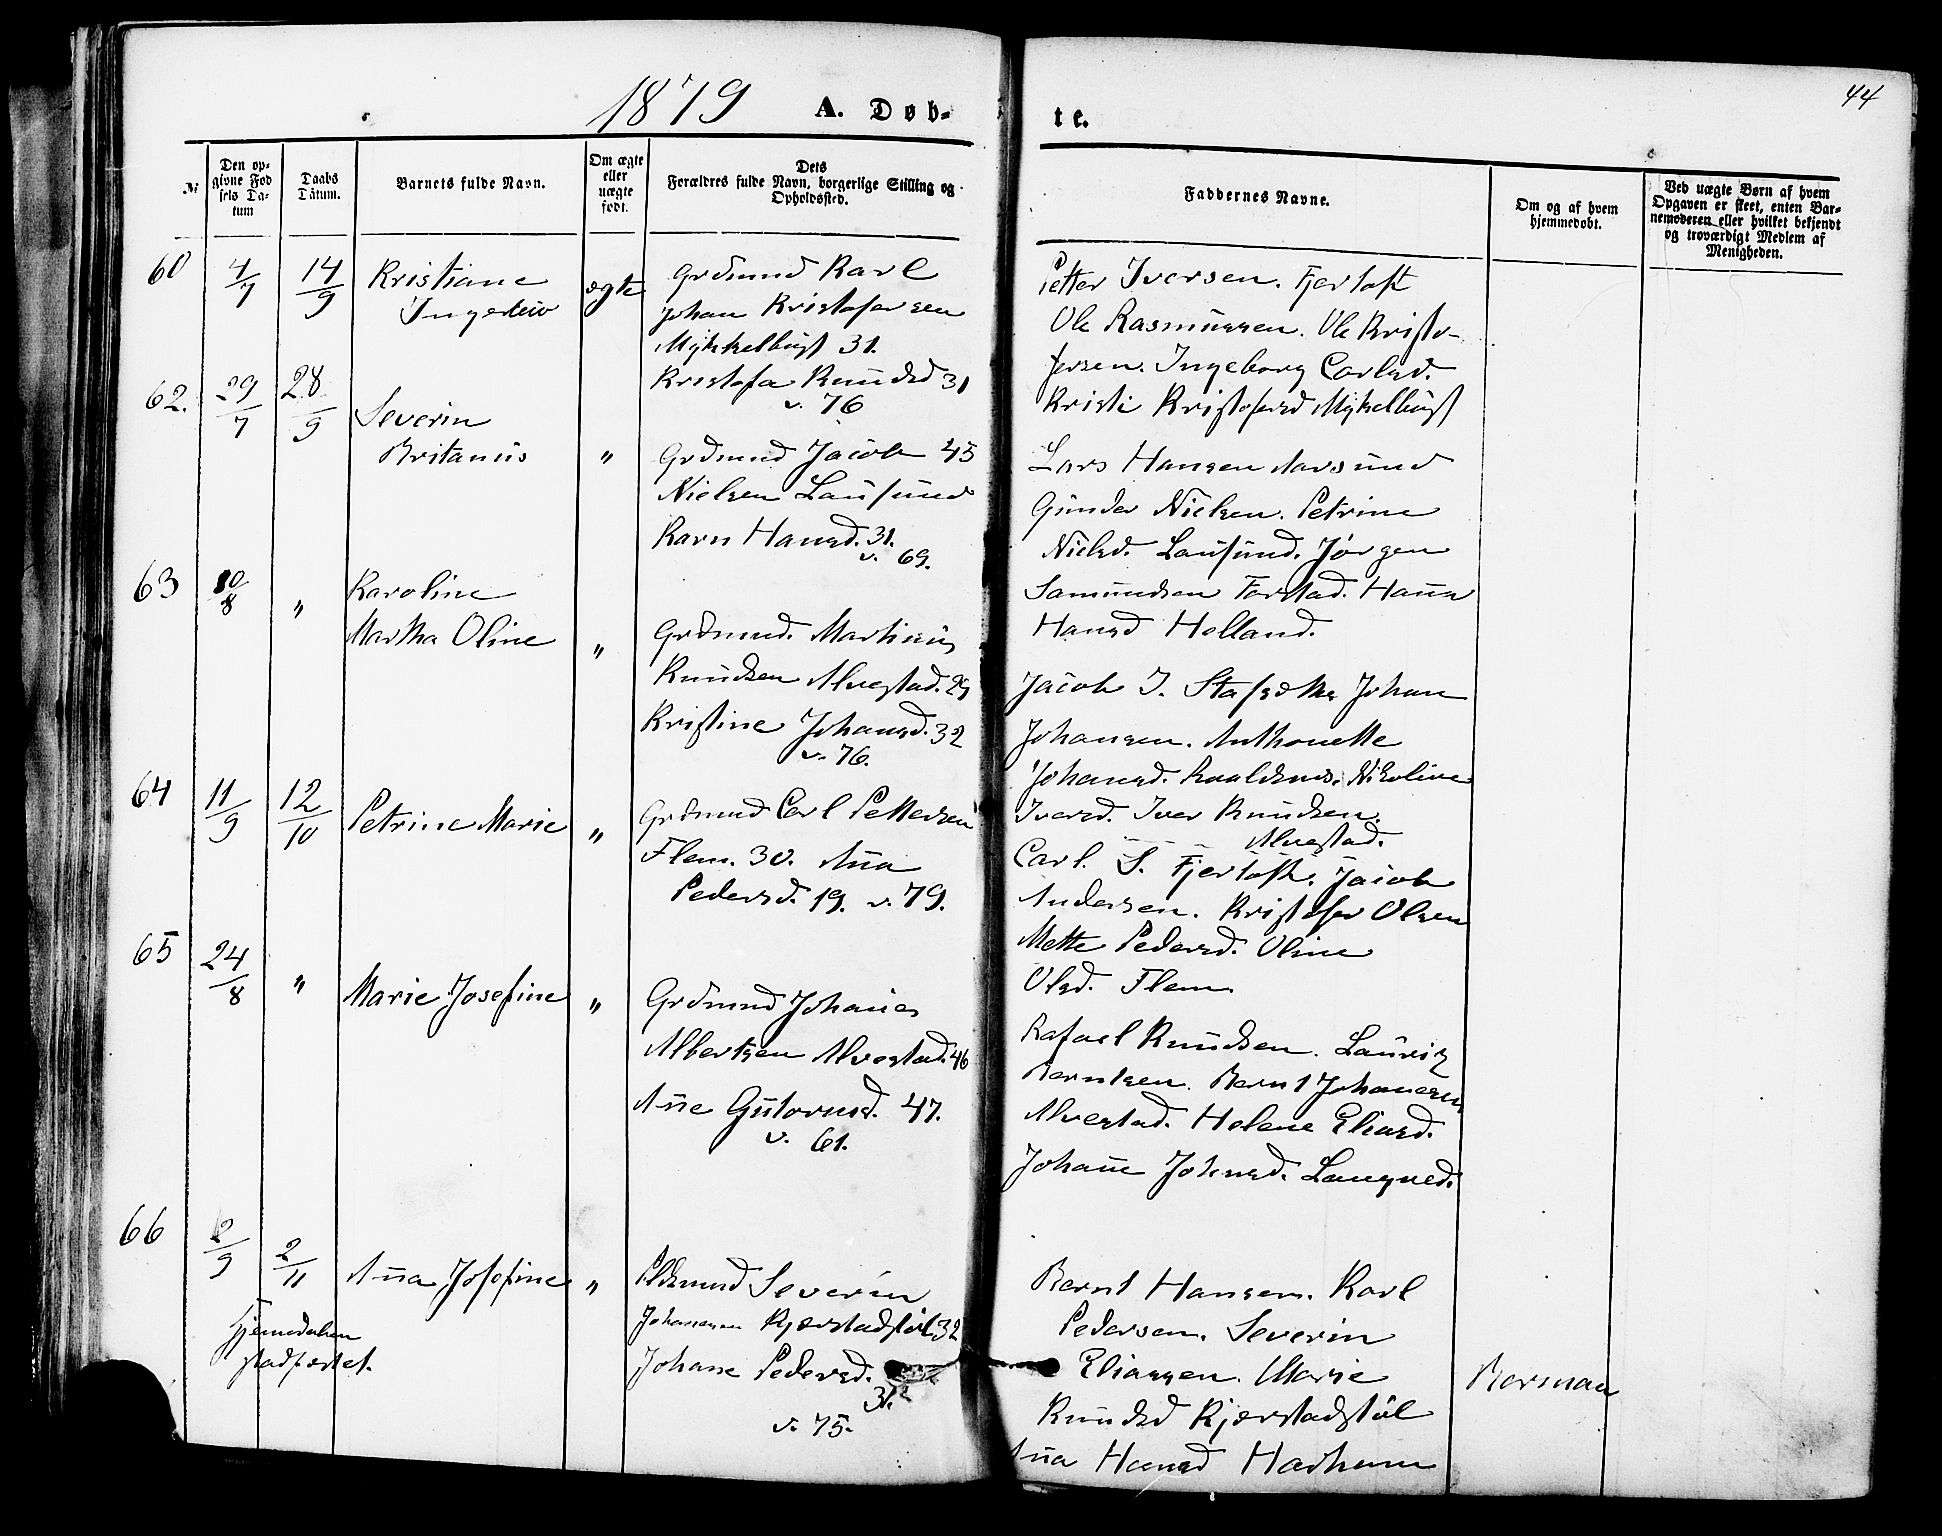 44
1879 A. Døb- te.
№
Den opgivne Fødsels Datum
Daabs Datum.
Barnets fulde Navn.
Om ægte eller uægte født.
Dets Forældres fulde Navn, borgerlige Stilling og Opholdssted.
Faddernes Navne.
Om og af hvem hjemmedøbt.
Ved uægte Børn af hvem Opgaven er skeet, enten Barnemoderen eller hvilket bekjendt og troværdigt Medlem af Menigheden.
60 4/7 14/9 Kristiane ægte Grdmnd Karl
Johan Kristofersen
Mykkelbust 31.
Kristofa Knudsd 31
v. 76
Petter Iversen. Fjertoft
Ole Rasmussen. Ole Kristo-
fersen. Ingeborg Carlsd.
Kristi Kristofersd Mykelbust
62. 29/7 28/9 Severin
Britanius " Grdmnd Jacob 45
Nielsen Lausund
Karn Hansd. 31.
v. 69.
Lars Hansen Aarsund
Gunder Nielsen. Petrine
Nielsd. Lausund. Jørgen
Samundsen Farstad. Hanna
Hansd Helland.
63 10/8 " Karoline
Martha Oline " Grdmnd. Martinus
Knudsen Alvestad. 29
Kristine Johansd. 32
v. 76.
Jacob J. Johan
Johansen. Anthonette
Johansd. Nikoline
Iversd. Iver Knudsen.
Alvestad.
64 11/9 12/10 Petrine Marie " Grdmnd Carl Pettersen
Flem. 30. Ana
Pedersd. 19. v. 79.
Carl. S. Fjertoft. Jacob
Andersen. Kristofer Olsen
Mette Pedersd. Oline
Olsd. Flem.
65 24/8 " Marie Josefine " Grdmnd Johanes
Albertsen Alvestad. 46
Ane Gutormsd. 47.
v. 61.
Rafael Knudsen. Lauriz
Berntsen. Bernt Johanesen
Alvestad. Helene Eliasd.
Johane Johnsd. Longved.
66 2/9 2/11 Ana Josefine " Pldsmnd Severin
Johanesen Kjærstadstøl 32
Johane Pedersd.
31.
v. 75.
Hjemedaaben
stadfæstet.
Bernt Hansen. Karl
Pedersen. Severin
Eliassen. Marie
Knudsd Kjærstadstøl
Ana Hansd Harham